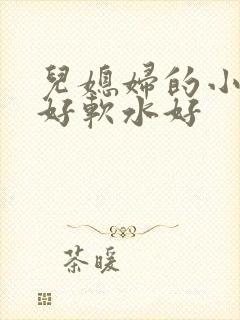 兒媳婦的小
好軟水好
茶暖